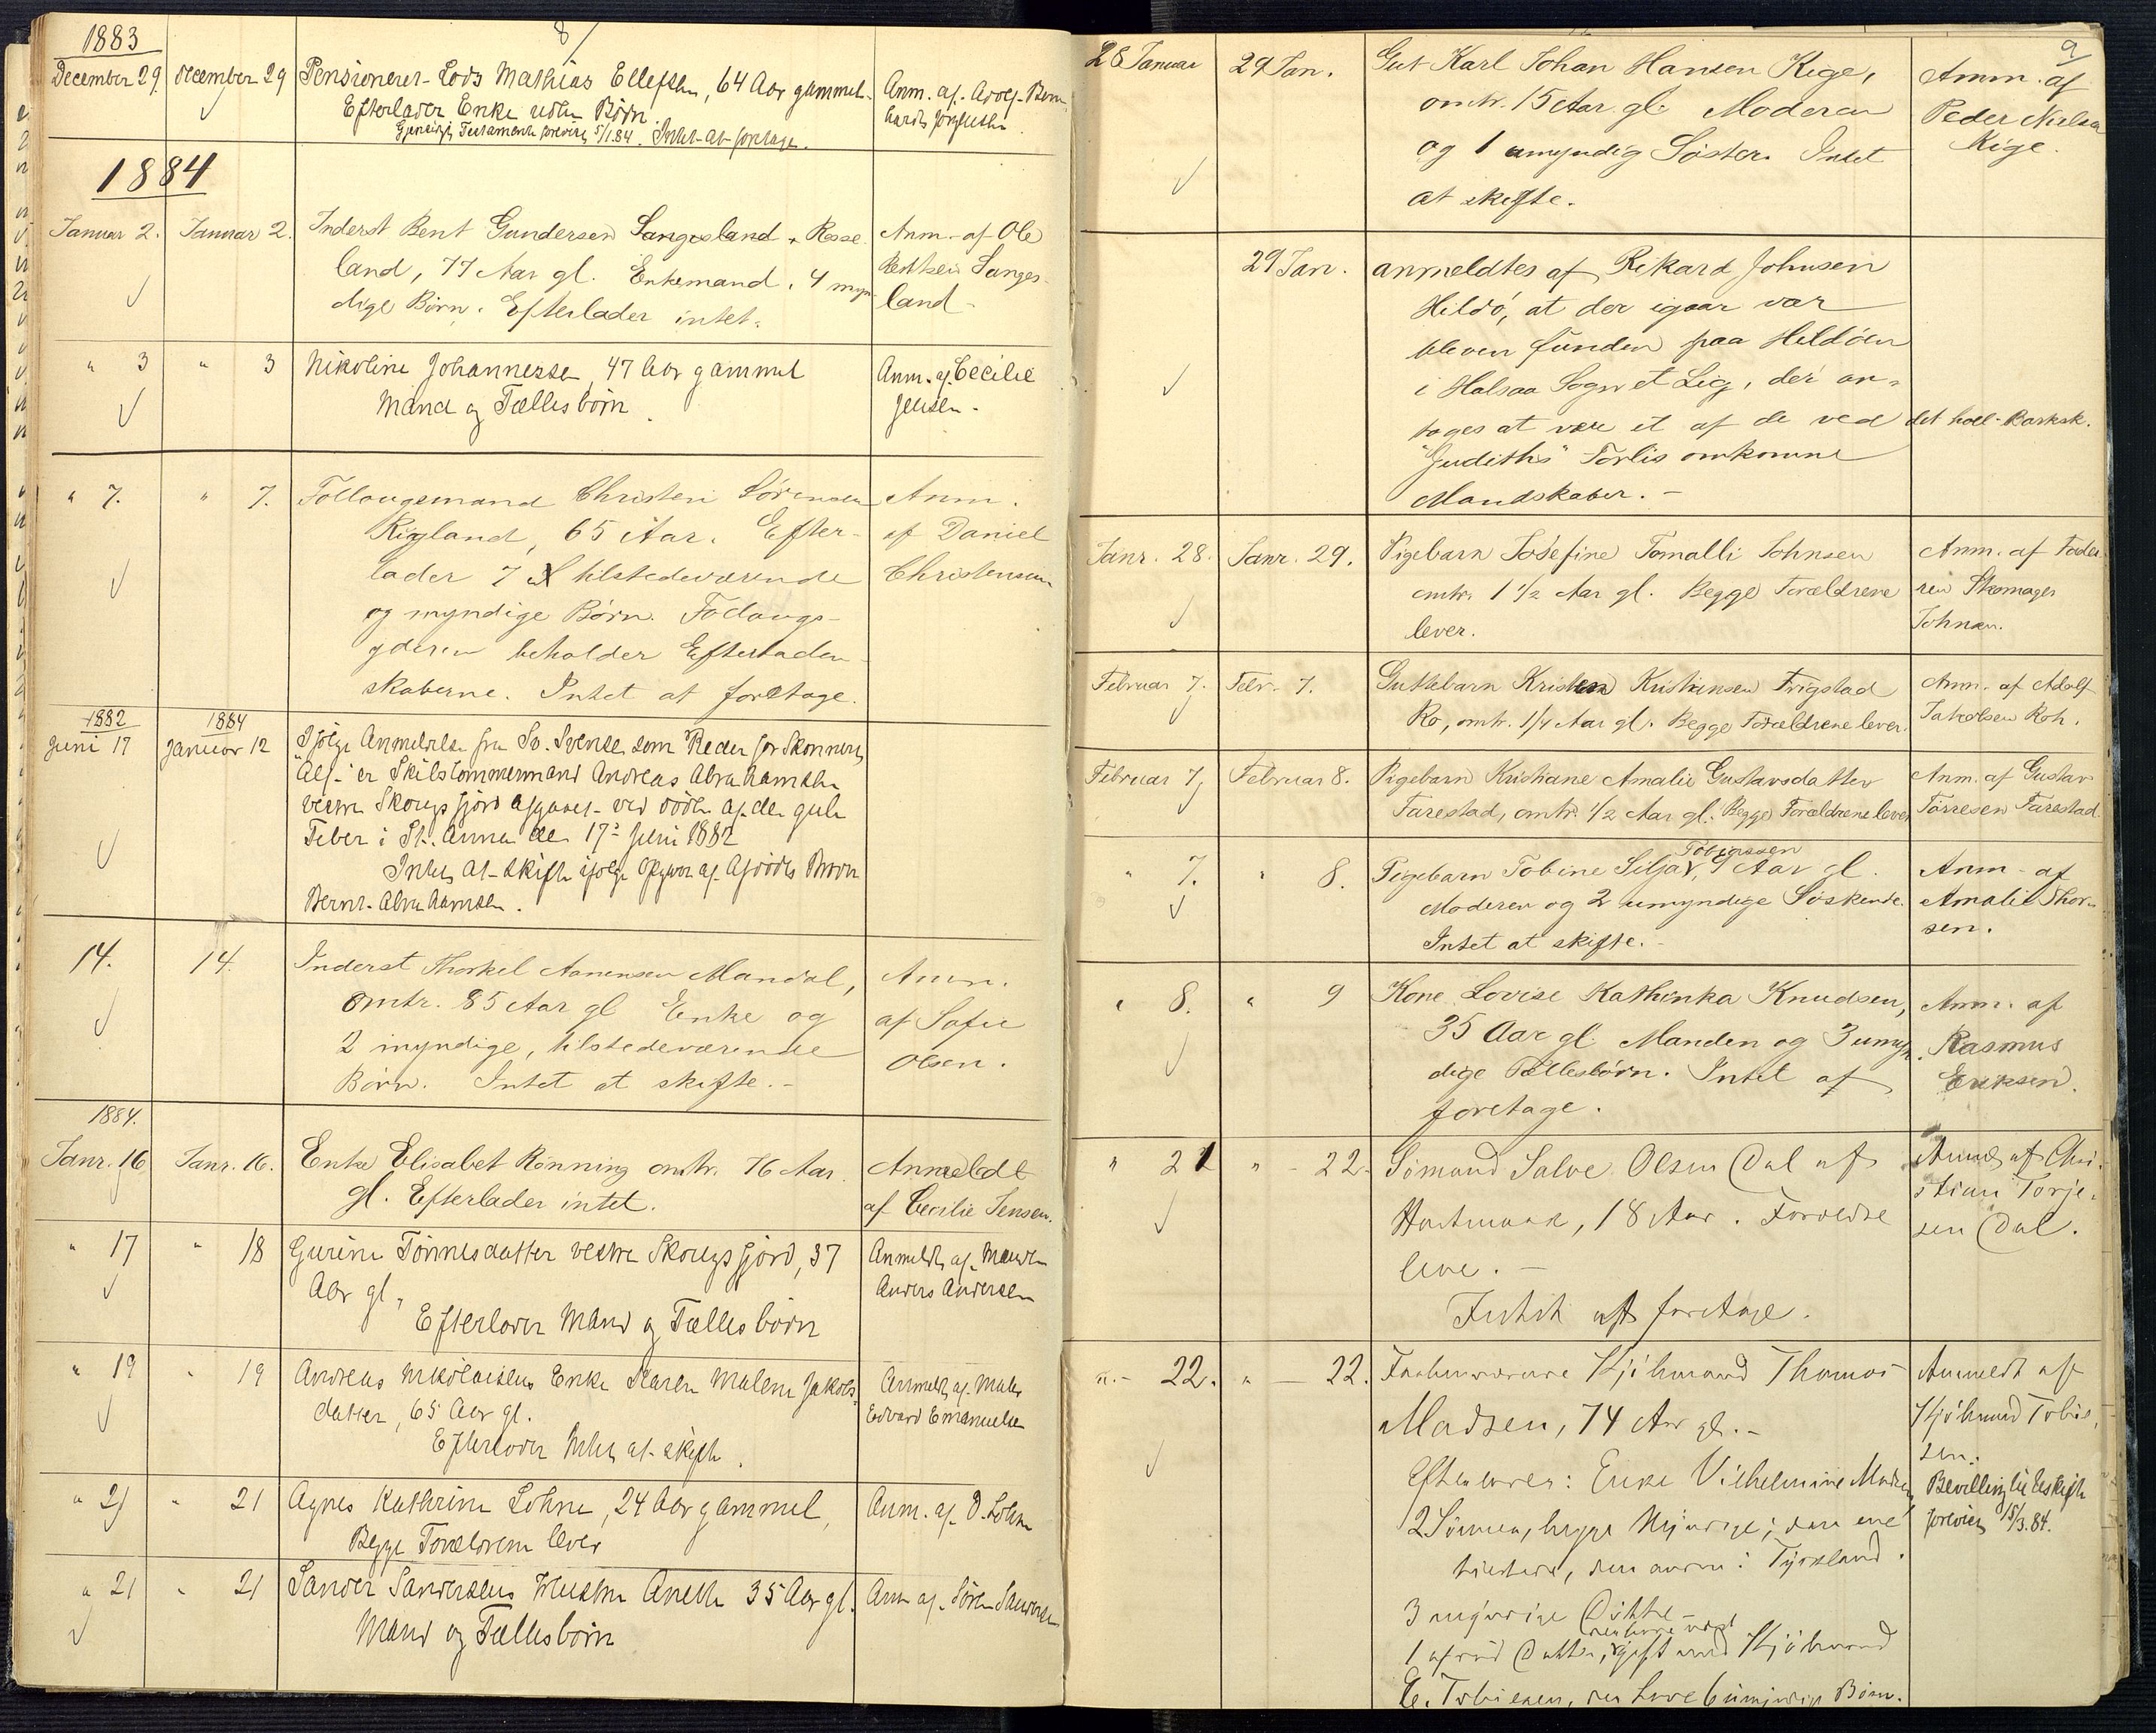 8/
1883
December 29. December 29 Pensioneret Lods Mathias Ellefsen, 64 Aar gammel. Anm. af Adolf Bern
Efterlader Enke uden Børn. hardt
Gjensidig Testamente forevist 5/1.84. Intet at foretage.
1884
Januar 2. Januar 2. Inderst Bent Gundersen Langesland, Rosse Anm. af Ole
land, 77 Aar gl. Enkemand. 4 myn Langes
dige Børn. Efterlader intet. land
" 3 " 3 Nikoline Johannessen, 47 Aar gammel Anm. af Cecilie
Mand og Fællesbørn. Jensen.
" 7. " 7. Follougemand Christen Sørensen Anm.
Rigland, 65 Aar. Efter- af Daniel
lader 7 tilstedeværende Christensen
og myndige Børn. Follougs-
yderen beholder Efterladen-
skaberne. Intet at foretage.
1882 1884
Juni 17 Januar 12 Ifølge Anmeldelse fra Sv. Svensen som Reder for Skonnert
"Alf" er Skibstømmermand Andreas Abrahamsen
vestre Skougsfjord afgaaet ved døden af den gule
Feber i St. Anna den 17de Juni 1882
Intet at skifte ifølge Opgave af Afdødes Broder
Bernt Abrahamsen.
14. 14. Inderst Thorkel Aanensen Mandal, Anm.
omtr. 85 Aar gl Enke og af Sofie
2 myndige, tilstedeværende Olsen.
Børn. Intet at skifte.-
1884.
Janr. 16 Janr. 16. Enke Elisabet Rønning omtr. 76 Aar Anmeldt
gl. Efterlader intet. af Cecilie Jensen.
" 17 " 18 Gurine Tønnesdatter vestre Skougsfjord, 37 Anmeldt af Manden
Aar gl. Anders Andersen
Efterlader Mand og Fællesbørn
" 19 " 19 Andreas Nikolaisens Enke Karen Malene Jakobs Anmeldt af Maler
datter, 65 Aar gl. Edvard Emanuelsen
Efterlader Intet at skifte.
" 21 " 21 Agnes Kathrine Lohne, 24 Aar gammel, Anm. af O. Lohne
Begge Forældrene lever
" 21 " 21 Sander Sandersens Hustru Anethe 35 Aar gl. Anm af Søren Sandersen
Mand og Fællesbørn
9
28 Januar 29 Jan. Gut Karl Johan Hansen Kige, Anm. af
omtr. 15 Aar gl. Moderen Peder Nielsen
og 1 umyndig Søster. Intet Kige.
at skifte.
29 Jan. anmeldtes af Rikard Johnsen
Hildø, at der igaar var
bleven funden paa Hildøen
i Halsaa Sogn et Lig, der an-
tages at være et af de ved det holl. Barksk.
"Judiths" Forlis omkomne
Mandskaber.-
Janr. 28. Janr. 29. Pigebarn Josefine Tomalli Johnsen Anm. af Fade
omtr. 1 1/2 Aar gl. Begge Forældrene ren Skomager
lever. Johnsen.
Februar 7. Febr. 7. Guttebarn Kristen Kristensen Frigstad Anm. af Adolf
Ro, omtr. 1/4 Aar gl. Begge Forældrene lever. Jakobsen Roh.
Februar 7 Februar 8. Pigebarn Kristiane Amalie Gustavsdatter Anm. af Gustav
Farestad, omtr. 1/2 Aar gl. Begge Forældrene lever Tørresen Farestad.
Tobiassen
" 7. " 8. Pigebarn Tobine Silja, 9 Aar gl. Anm. af
Moderen og 2 umyndige Søskende. Amalie Thor-
Intet at skifte.- sen.
" 8. " 9 Kone Lovise Kathinka Knudsen, Anm. af
35 Aar gl. Manden og 3 umyn Rasmus
dige Fællesbørn. Intet at Eriksen.
foretage.
" 21 " - 22. Sømand Salve Olsen Dal af Anm. af Chri
Hartmark, 18 Aar. Forældre stian Torje-
leve.- sen Dal.
Intet at foretage.
" - 22. " - 22. Kjøbmand Thomas Anmeldt af
Madsen, 74 Aar gl.- Kjøbmand Tobia
Efterlader: Enke Vilhelmine Madsen, sen.
2 Sønner, begge Myndige; den ene Bevilling til
den anden i Tyskland. forevist 15/3.84.
3 myndige Døttre
1 afdød Datter, gift med Kjøbmand
C. Tobiasen, der have 6 umyndige Børn.